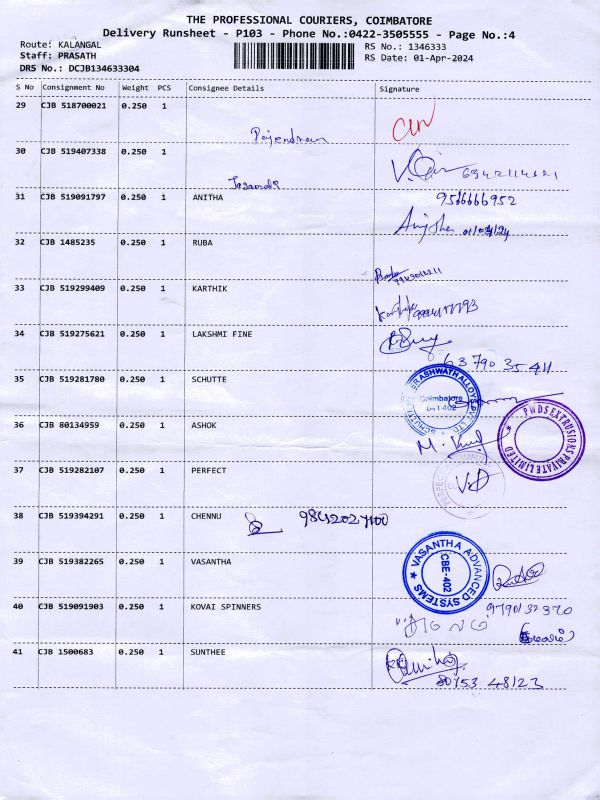 THE PROFESSIONAL COURIERS, COIMBATORE
Delivery Runsheet - P103 - Phone No.:0422-3505555 - Page No.:4
Route: KALANGAL
Staff: PRASATH
DRS No.: DCJB134633304
RS No.: 1346333
RS Date: 01-Apr-2024
S No Consignment No Weight PCS Consignee Details Signature
29 CJB 518700021 0.250 1
Rajendran
30 CJB 519407338 0.250 1
31 CJB 519091797 0.250 1 ANITHA
9566666952
01/04/24
32 CJB 1485235 0.250 1 RUBA
33 CJB 519299409 0.250 1 KARTHIK
34 CJB 519275621 0.250 1 LAKSHMI FINE
63790 35411
35 CJB 519281780 0.250 1 SCHUTTE
Coimbatore
36 CJB 80134959 0.250 1 ASHOK
PWDS EXTRUSIONS PRIVATE LIMITED
37 CJB 519282107 0.250 1 PERFECT
38 CJB 519394291 0.250 1 CHENNU
39 CJB 519382265 0.250 1 VASANTHA
VASANTHA ADVANCED SYSTEMS
CBE-402
40 CJB 519091903 0.250 1 KOVAI SPINNERS
41 CJB 1500683 0.250 1 SUNTHEE
80153 48123